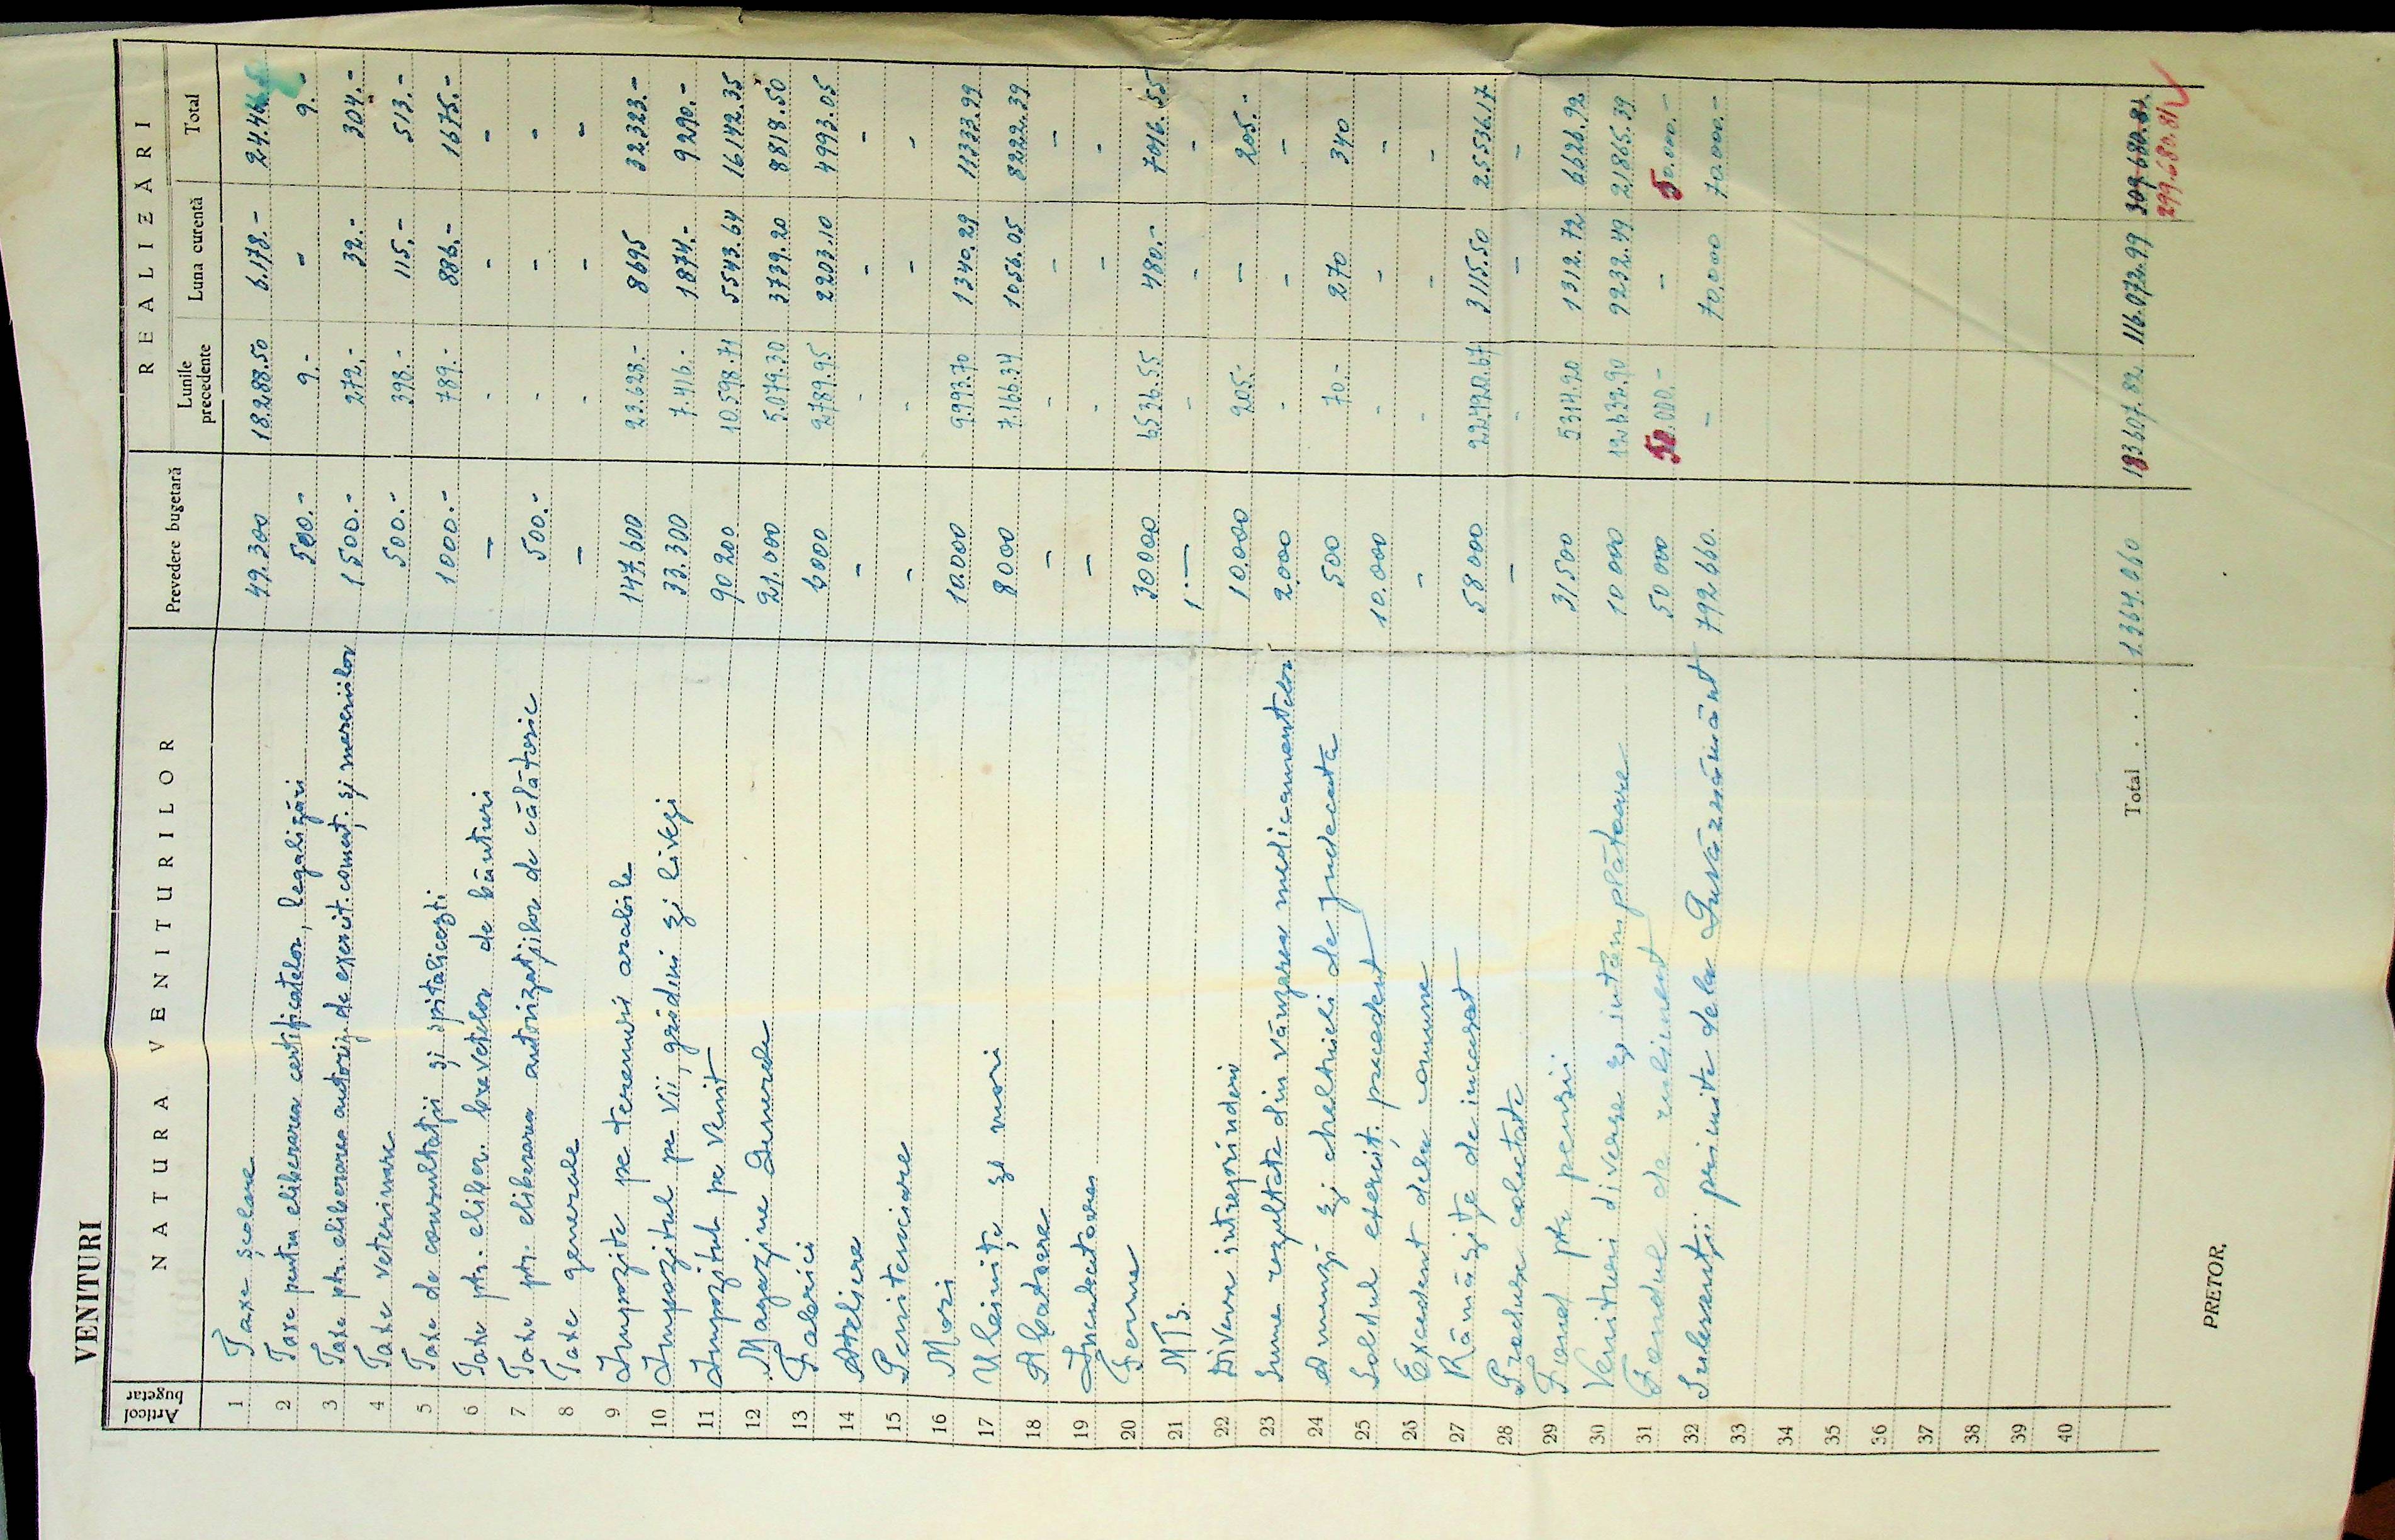 VENITURI
Articol bugetar NATURA VENITURILOR Prevedere bugetară REALIZĂRI
Lunile precedente Luna curentă Total
1 Taxe școlare 49.300 18.288.50 6.178.- 24.466.5
2 Taxe pentru eliberarea certificatelor, legalizări 500.- 9.- - 9.-
3 Taxe ptr. eliberarea autoriz. de exercit. comerț. și meseriilor 1500.- 272.- 32.- 304.-
4 Taxe veterinare 500.- 398.- 115.- 513.-
5 Taxe de consultații și spitalicești 1000.- 789.- 886.- 1675.-
6 Taxe ptr. eliber. brevetelor de băuturi - - - -
7 Taxe ptr. eliberarea autorizațiilor de călătorie 500.- - - -
8 Taxe generale - - - -
9 Impozite pe terenuri arabile 147.600 23.628.- 8695 32.323.-
10 Impozitul pe vii, grădini și livezi 33.300 7.416.- 1874.- 9290.-
11 Impozitul pe venit 90200 10.598.71 5543.64 16.142.35
12 Magazine Generale 21.000 5.079.30 3739.20 8818.50
13 Fabrici 6000 2789.95 2203.10 4993.05
14 Ateliere - - - -
15 Penitenciare - - - -
16 Mori 10.000 9993.70 1340.29 11333.99
17 Uleinițe și mori 8000 7.166.34 1056.05 8222.39
18 Abatoare - - - -
19 Incubatoare - - - -
20 Ferme 30000 6536.55 480.- 7016.55
21 MTS. 1.— - - -
22 Diverse intreprinderi 10.000 205.- - 205.-
23 Sume rezultate din vânzarea medicamentelor 2000 - - -
24 Amenzi și cheltuieli de judecată 500 70.- 270 340
25 Soldul exercit. precedent 10.000 - - -
26 Excedent dela comune - - - -
27 Rămășițe de incasat 58000 22.420.67 3115.50 25536.17
28 Produse colectate - - - -
29 Fond ptr pensii 31500 5314.20 1312.72 6626.92
30 Venituri diverse și întâmplătoare 10000 12632.90 9232.49 21865.39
31 Fondul de rulment 50000 50.000.- - 50.000.-
32 Subvenții primite dela Învăzământ 792.660. - 70.000 70.000.-
33
34
35
36
37
38
39
40
Total . . . . 1.364.060 183.607.82 116.072.99 309.680.81
299.680.81
PRETOR,